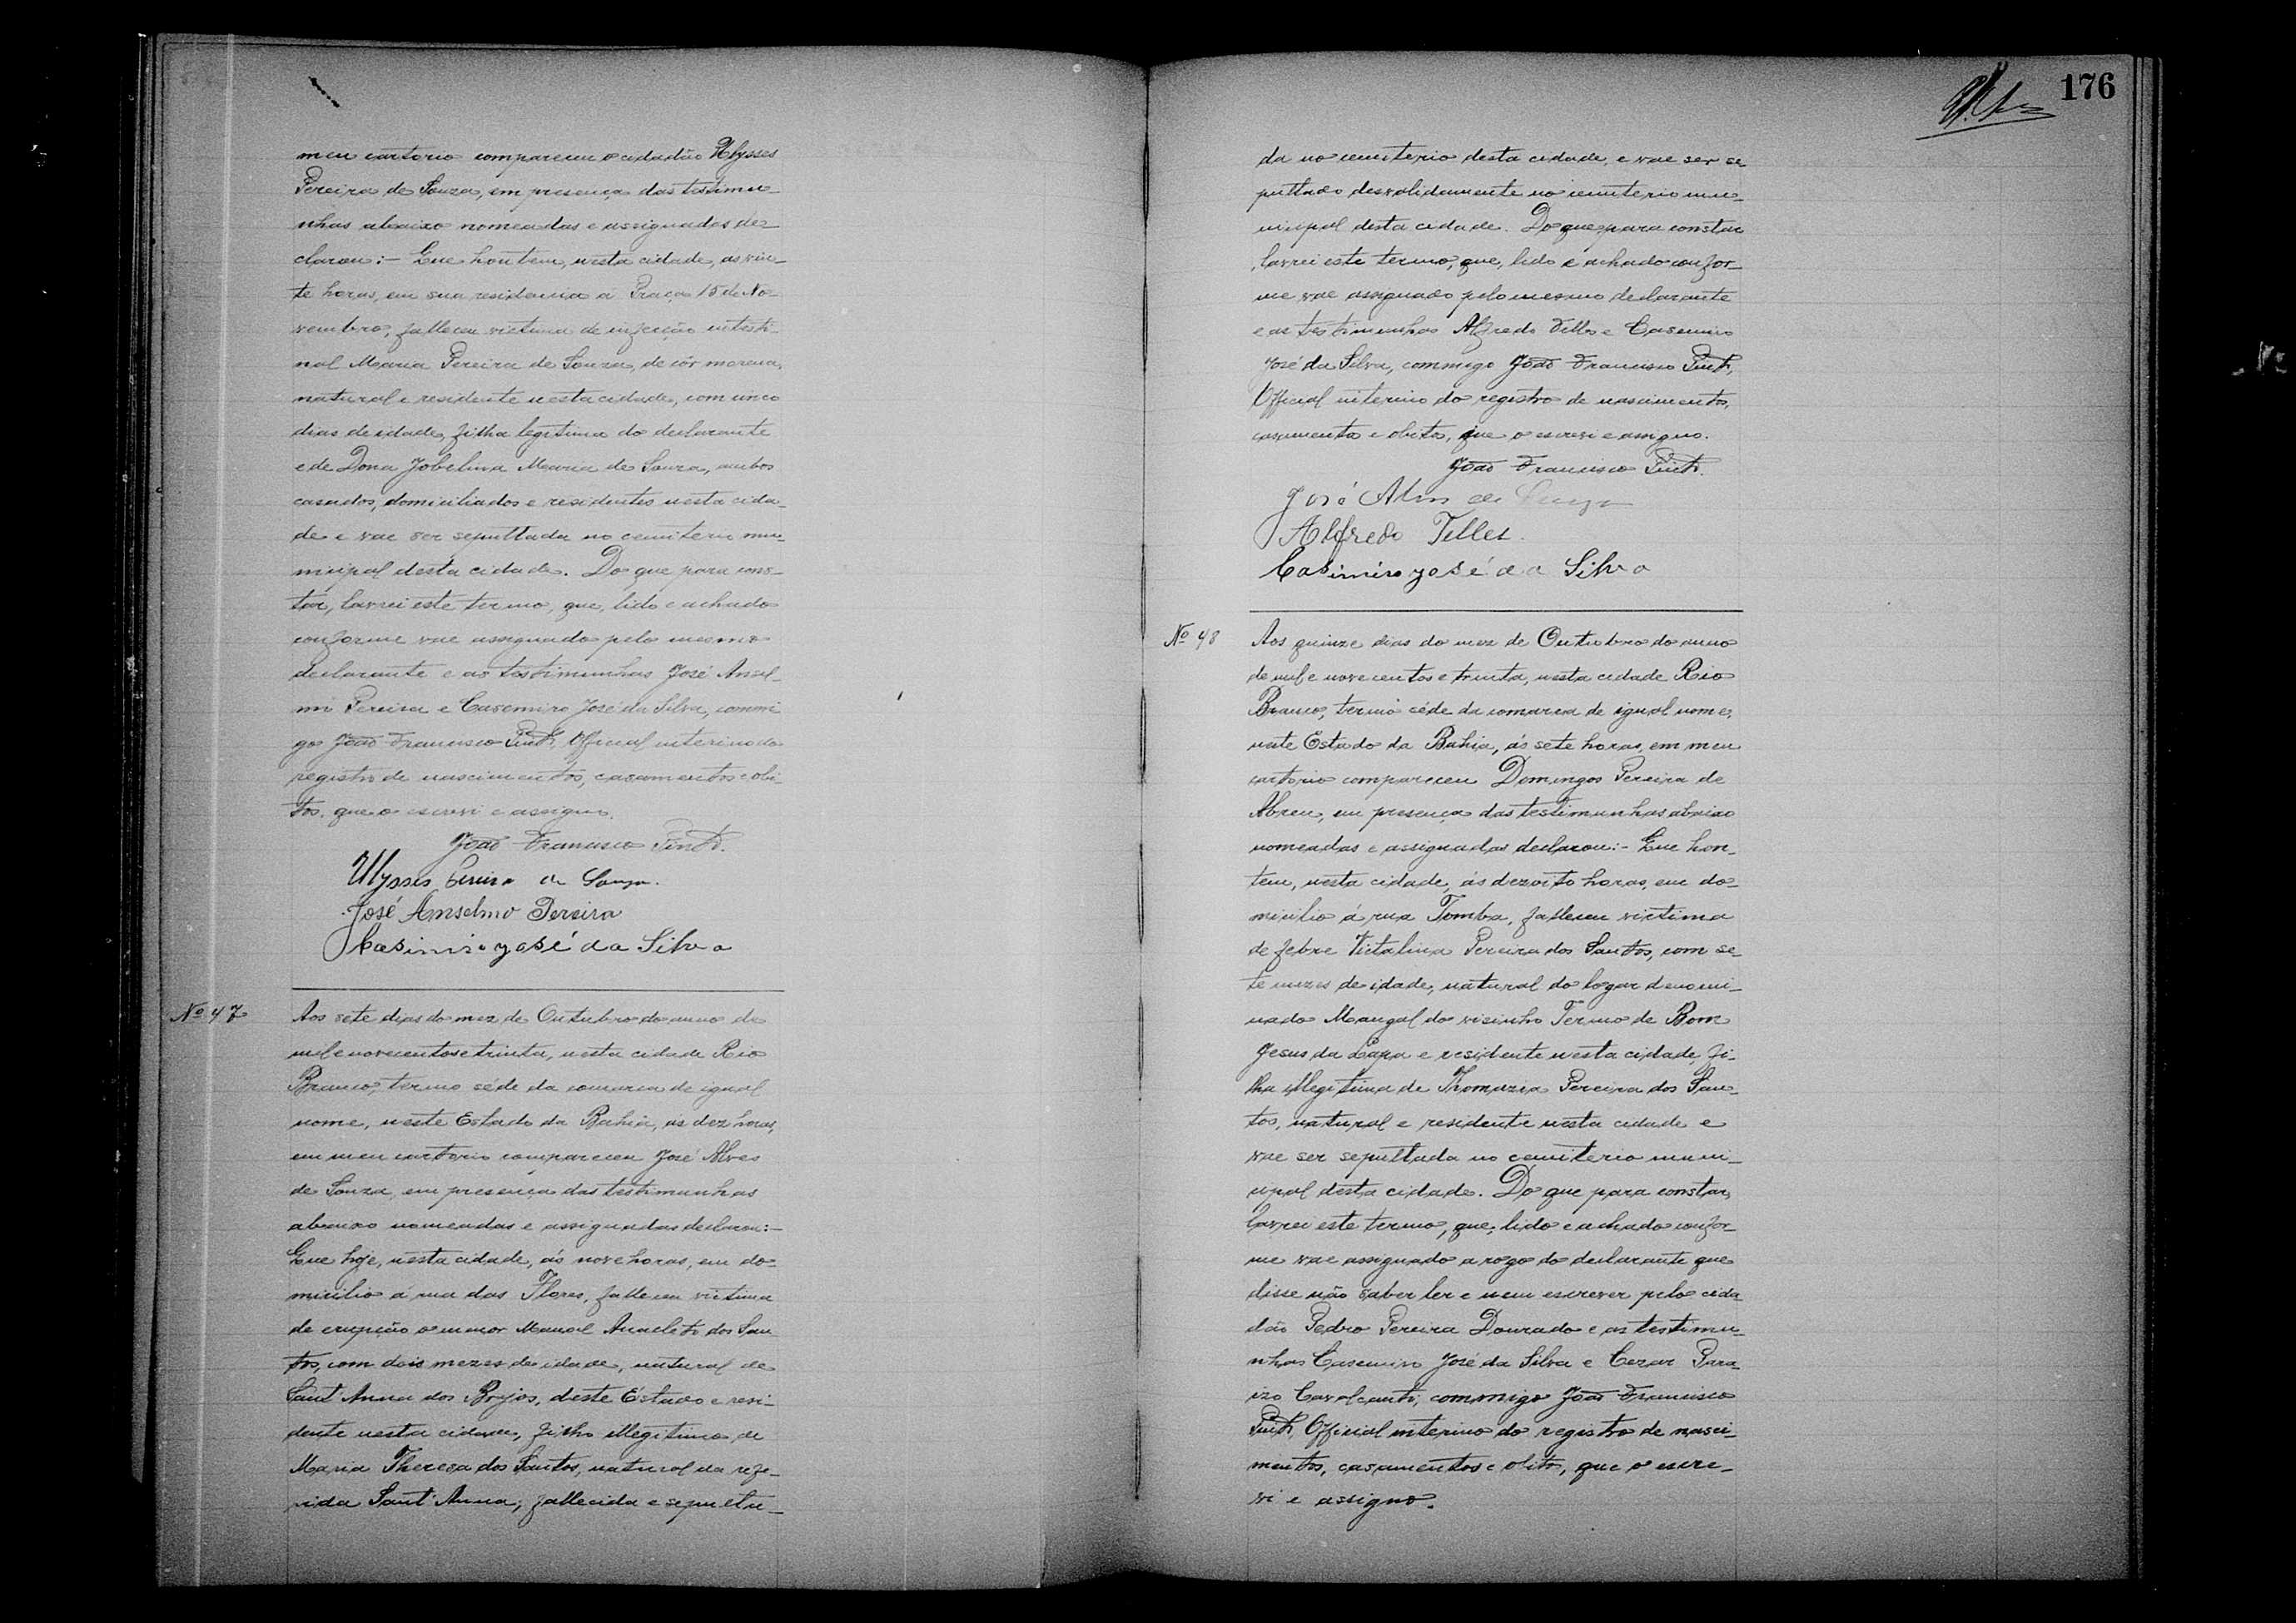 meu cartorio compareceu o cidadão Ulysses
Pereira de Souza, em presença das testimu-
nhas abaixo nomeadas e assignadas de-
clarou:- Que hontem, nesta cidade, as vin-
te horas, em sua residencia a Praça 15 de No-
vembro, falleceu victima de infecção intesti-
nal Maria Pereira de Souza, de côr morena,
natural e residente nesta cidade, com cinco
dias de idade, filha legitima do declarante
e de Dona Jobelina Maria de Souza, ambos
casados, domiciliados e residentes nesta cida-
de e vae ser sepultada no cemiterio mu-
nicipal desta cidade. Do que para cons-
tar, lavrei este termo, que, lido e achado
conforme vae assignado pelo mesmo
declarante e as testimunhas José Ansel-
mo Pereira e Casemiro José da Silva, commi
go João Francisco Pinto, Official interino do
registro de nascimentos, casamentos e obi-
tos, que o escrevi e assigno.
João Francisco Pinto.
Ulysses Pereira de Souza.
José Anselmo Pereira
Casimiro josé da Silva
Nº 47
Aos sete dias do mez de Outubro do anno de
mil e novecentos e trinta, nesta cidade Rio
Branco, termo séde da comarca de igual
nome, neste Estado da Bahia, as dez horas,
em meu cartorio compareceu José Alves
de Souza, em presença das testimunhas
abaixo nomeadas e assignadas declarou:-
Que hoje, nesta cidade, ás nove horas, em do-
micilio á rua das Flores, falleceu victima
de erupção o menor Manoel Anacleto dos San
tos, com dois mezes de idade, natural de
Sant'Anna dos Brejos, deste Estado e resi-
dente nesta cidade, filho illegitimo de
Maria Thereza dos Santos, natural da refe-
rida Sant'Anna, fallecida e sepulta-
176
da no cemiterio desta cidade, e vae ser se-
pultado desvalidamente no cemiterio mu-
nicipal desta cidade. Do que, para constar
lavrei este termo, que, lido e achado confor-
me vae assignado pelo mesmo declarante
e as testimunhas Alfredo Telles e Casemiro
José da Silva, commigo João Francisco Pinto,
Official interino do registro de nascimentos,
casamentos e obitos, que o escrevi e assigno.
João Francisco Pinto.
José Alves de Souza
Alfredo Telles.
Casimiro josé da Silva
Nº 48
Aos quinze dias do mez de Outubro do anno
de mil e novecentos e trinta, nesta cidade Rio
Branco, termo séde da comarca de igual nome,
neste Estado da Bahia, ás sete horas, em meu
cartorio compareceu Domingos Pereira de
Abreu, em presença das testimunhas abaixo
nomeadas e assignadas declarou:- Que hon-
tem, nesta cidade, ás dezoito horas, em do-
micilio á rua Tomba, falleceu victima
de febre Victalina Pereira dos Santos, com se-
te mezes de idade, natural do logar denomi-
nado Mangal do visinho Termo de Bom
Jesus da Lapa e residente nesta cidade, fi-
lha illegitima de Thomazia Pereira dos San-
tos, natural e residente nesta cidade e
vae ser sepultada no cemiterio muni-
cipal desta cidade. Do que para constar,
lavrei este termo, que, lido e achado confor-
me vae assignado a rogo do declarante que
disse não saber ler e nem escrever pelo cida
dão Pedro Pereira Dourado e as testimu-
nhas Casemiro José da Silva e Cezar Para-
izo Cavalcanti, commigo João Francisco
Pinto, Official interino do registro de nasci-
mentos, casamentos e obitos, que o escre-
vi e assigno.